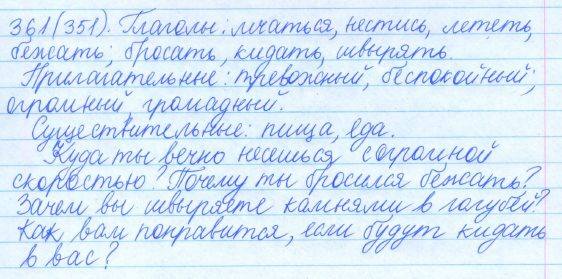 361(351). Глаголы: мчаться, нестись, лететь,
бежать; бросать, кидать, швырять.
Прилагательные: тревожный, беспокойный;
огромный громадный.
Существительные: пища, еда.
Куда ты вечно несешься с огромной
скоростью? Почему ты бросился бежать?
Зачем вы швыряете камнями в голубей?
Как вам понравится, если будут кидать
в вас?